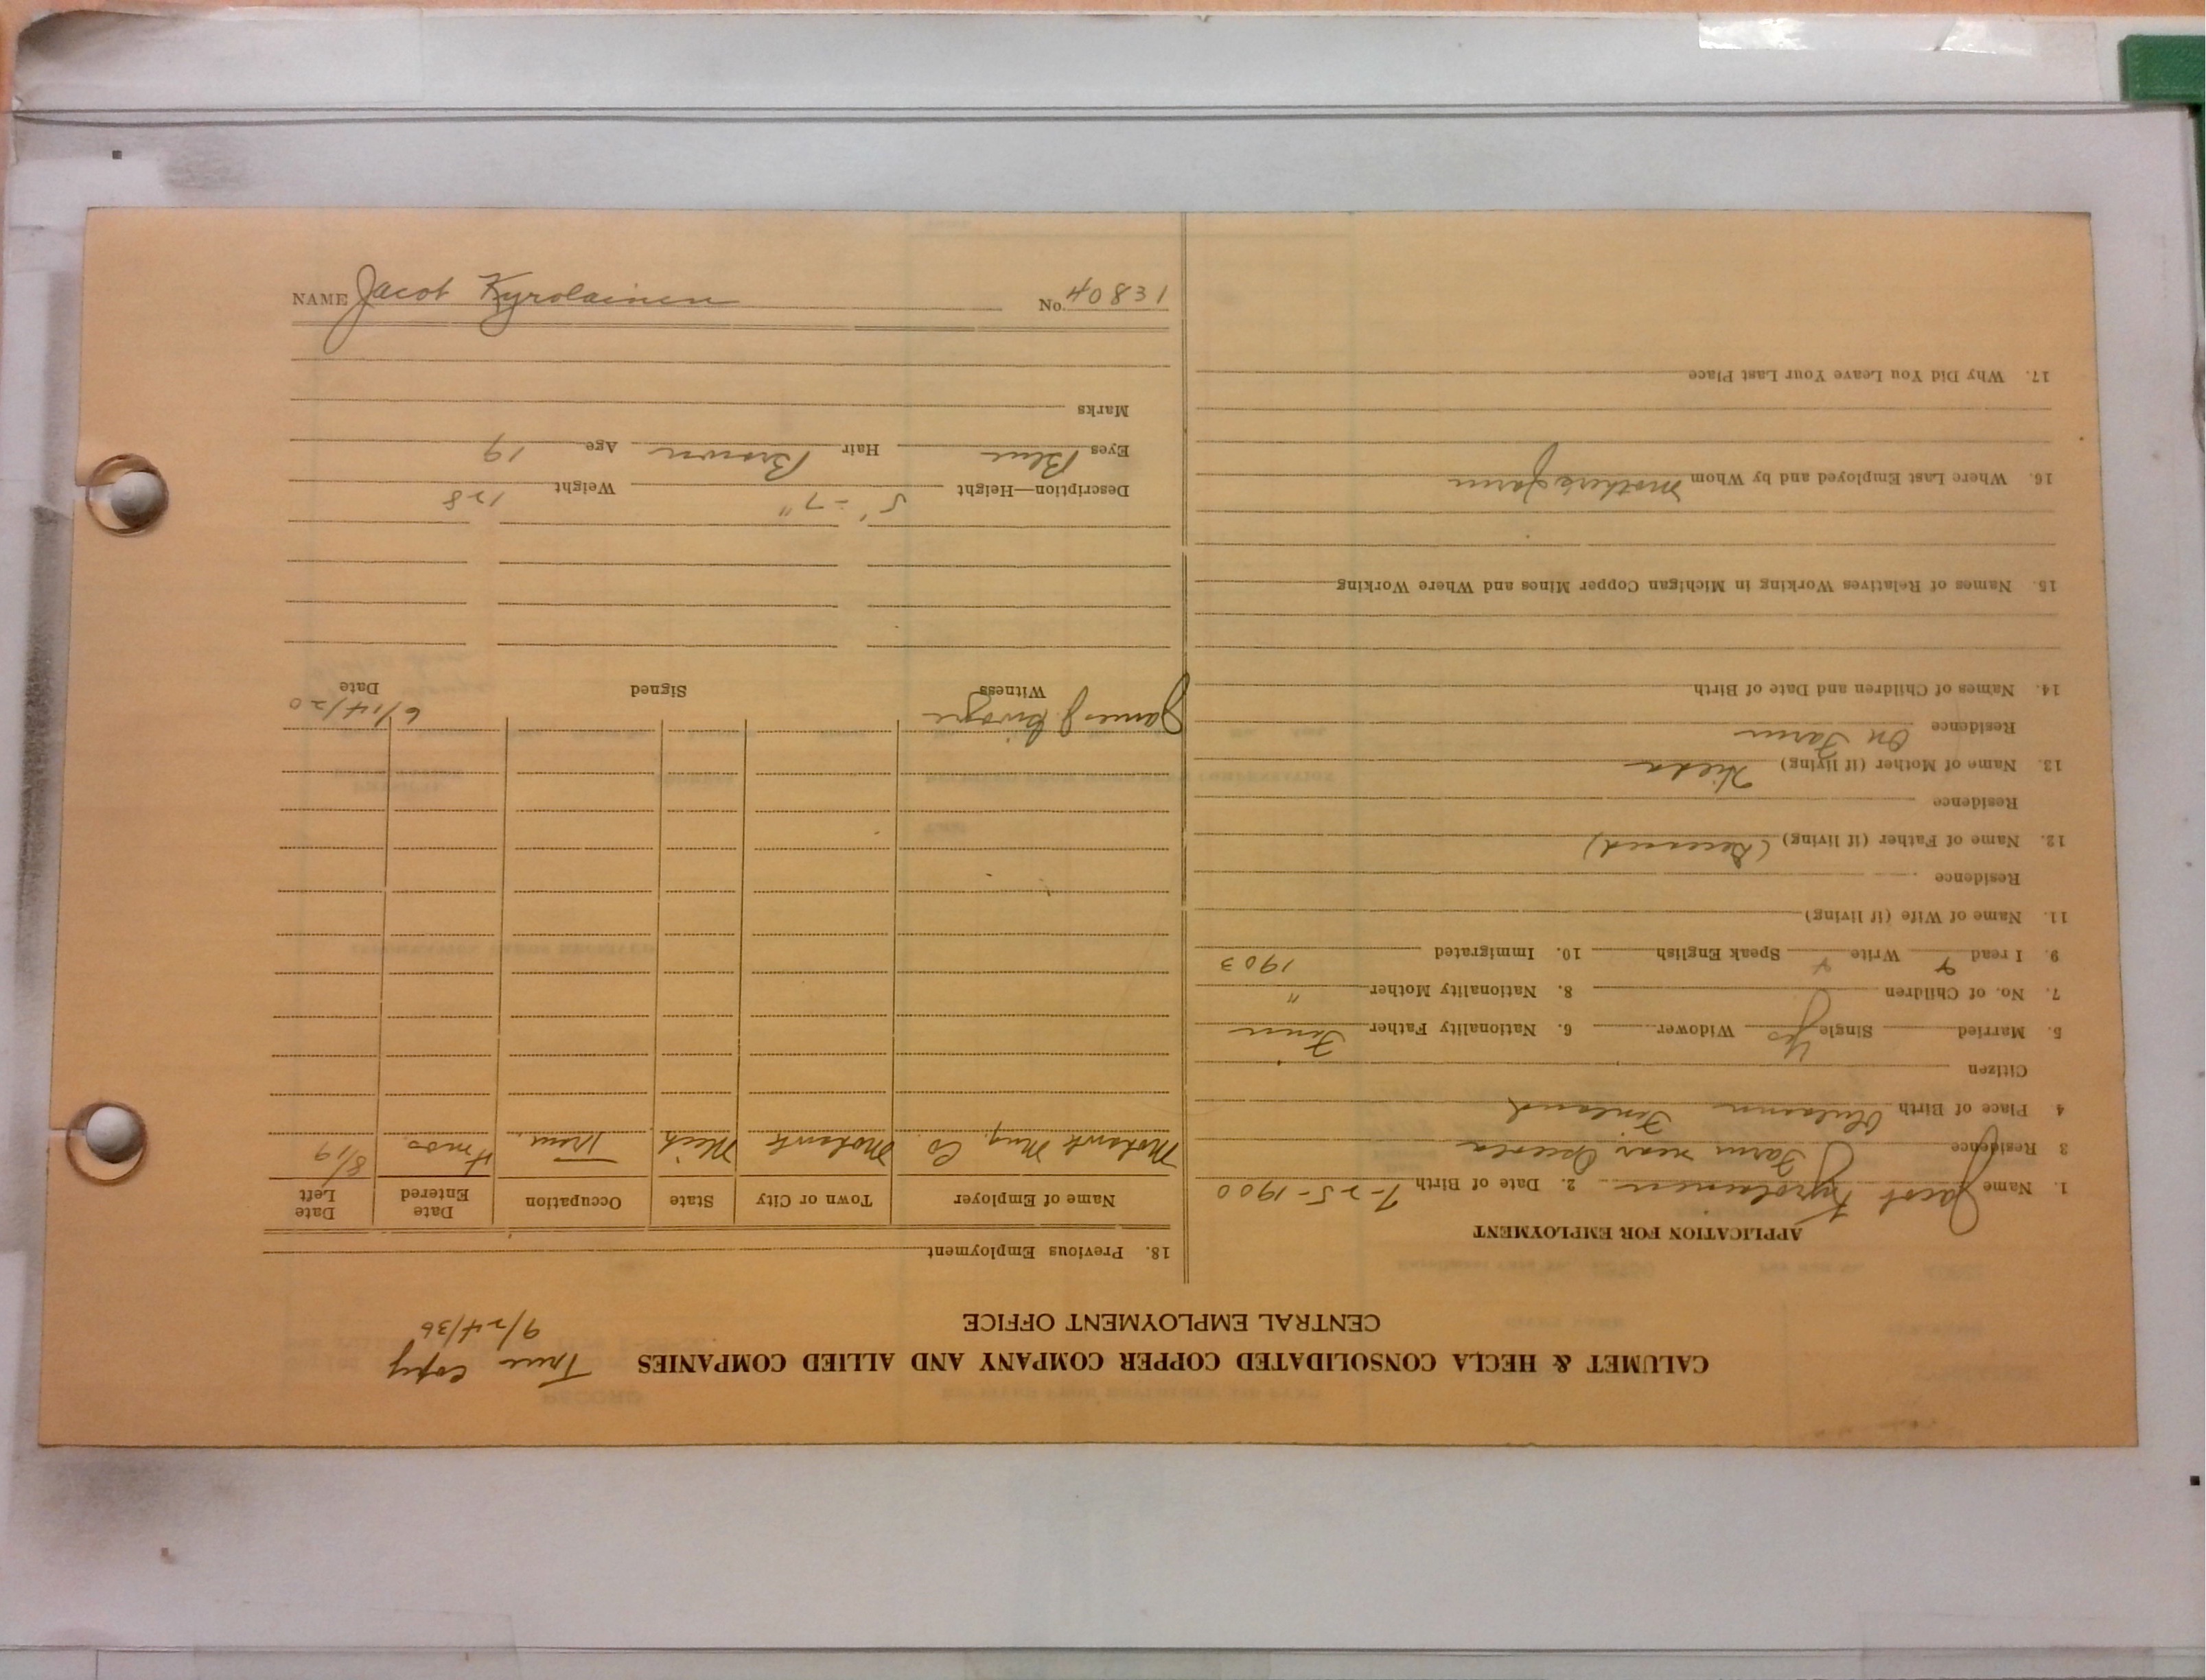 CALUMET & HECLA CONSOLIDATED COPPER COMPANY AND ALLIED COMPANIES
True copy
9/24/36
CENTRAL EMPLOYMENT OFFICE
APPLICATION FOR EMPLOYMENT
1. Name Jacob Kyrolainen 2. Date of Birth 7-25-1900
3 Residence Farm near Osceola
4 Place of Birth Finland
Citizen
5. Married Single Yes Widower 6. Nationality Father Finn
7. No. of Children 8. Nationality Mother "
9. I read Write Speak English 10. Immigrated 1903
11. Name of Wife (if living)
Residence
12. Name of Father (if living) (Deceased)
Residence
13. Name of Mother (if living) Hilda
Residence On Farm
14. Names of Children and Date of Birth
15. Names of Relatives Working in Michigan Copper Mines and Where Working
16. Where Last Employed and by Whom Mothers farm
17. Why Did You Leave Your Last Place
18. Previous Employment
Name of Employer Town or City State Occupation Date Entered Date Left
Mohawk Mng. Co. Mohawk Mich Tram 4 mos 8/19
James J. 6/14/20
Witness Signed Date
Description—Height 5'-7" Weight 128
Eyes Blue Hair Brown Age 19
Marks
NAME Jacob Kyrolainen No. 40831